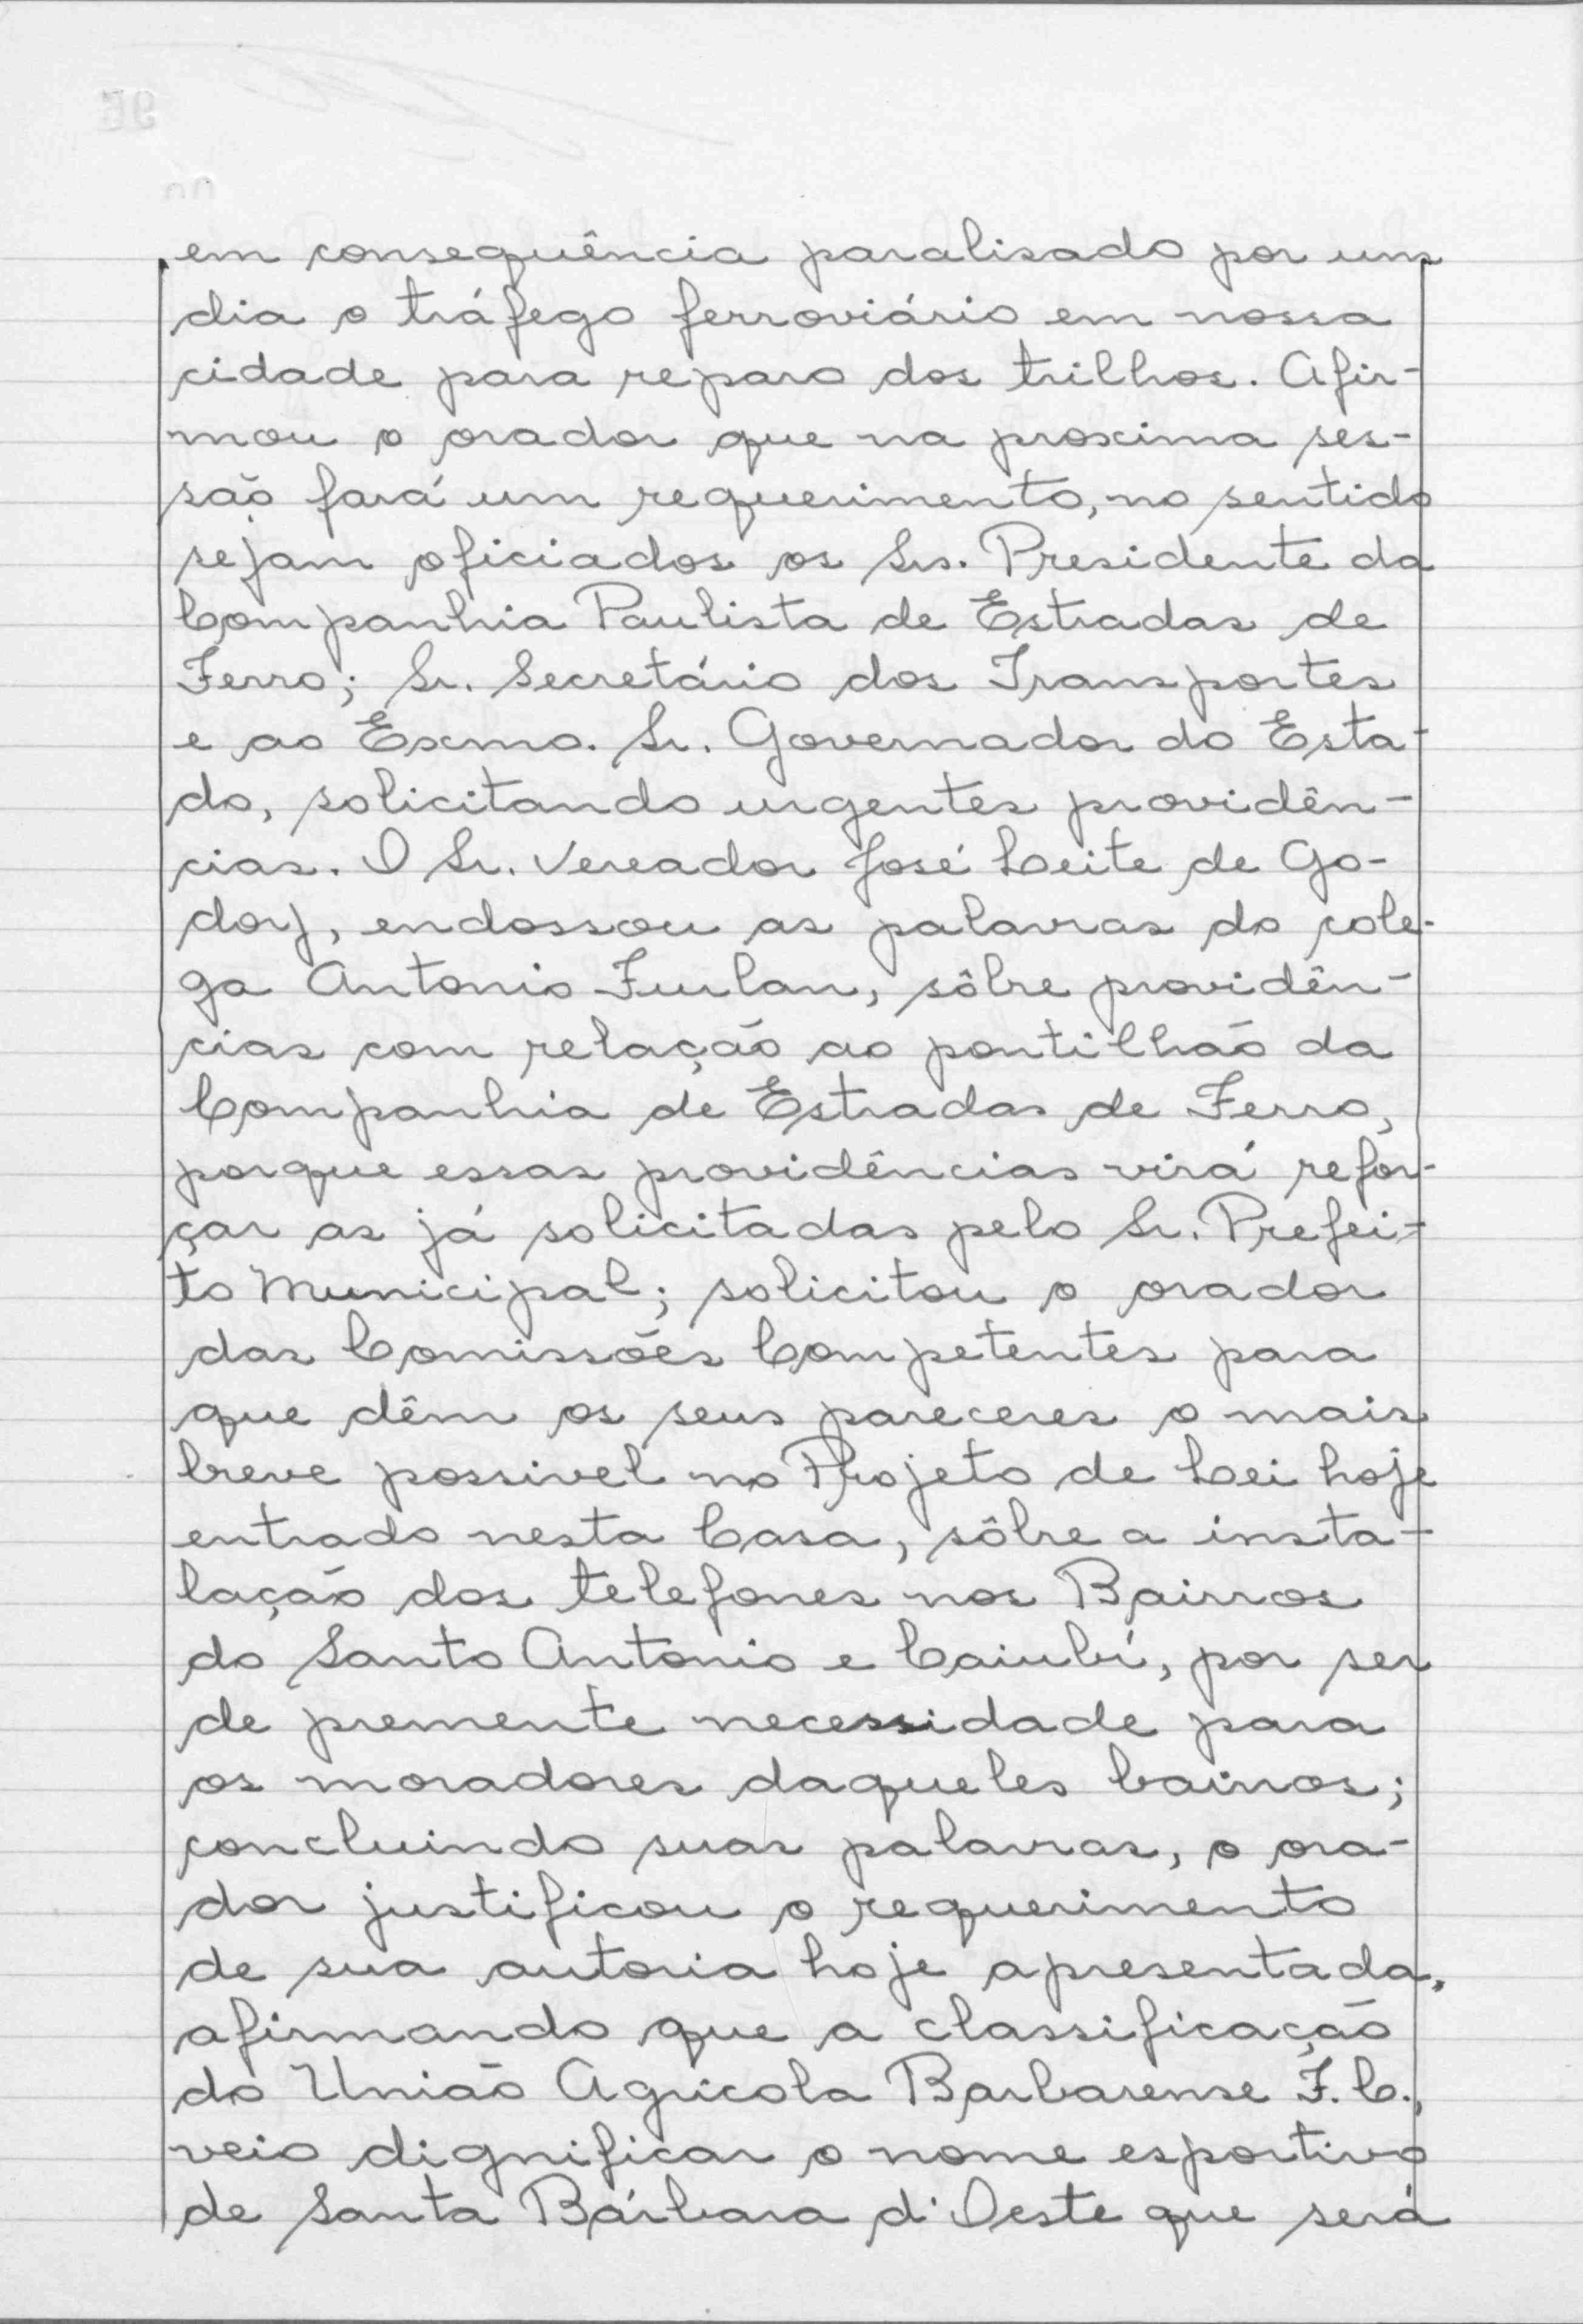 em consequência paralisado por um
dia o tráfego ferroviário em nossa
cidade para reparo dos trilhos. Afir-
mou o orador que na proxima ses-
são fará um requerimento, no sentido
sejam oficiados os Srs. Presidente da
Companhia Paulista de Estradas de
Ferro; Sr. Secretário dos Transportes
e ao Exmo. Sr. Governador do Esta-
do, solicitando urgentes providên-
cias. O Sr. Vereador José Leite de Go-
doy, endossou as palavras do cole-
ga Antonio Furlan, sôbre providên-
cias com relação ao pontilhão da
Companhia de Estradas de Ferro,
porque essas providências virá refor-
çar as já solicitadas pelo Sr. Prefei-
to Municipal; solicitou o orador
das Comissões Competentes para
que dêm os seus pareceres o mais
breve possivel no Projeto de Lei hoje
entrado nesta Casa, sôbre a insta-
lação dos telefones nos Bairros
do Santo Antonio e Caiubí, por ser
de premente necessidade para
os moradores daqueles bairros;
concluindo suas palavras, o ora-
dor justificou o requerimento
de sua autoria hoje apresentada,
afirmando que a classificação
do União Agricola Barbarense F.C.,
veio dignificar o nome esportivo
de Santa Bárbara d'Oeste que será